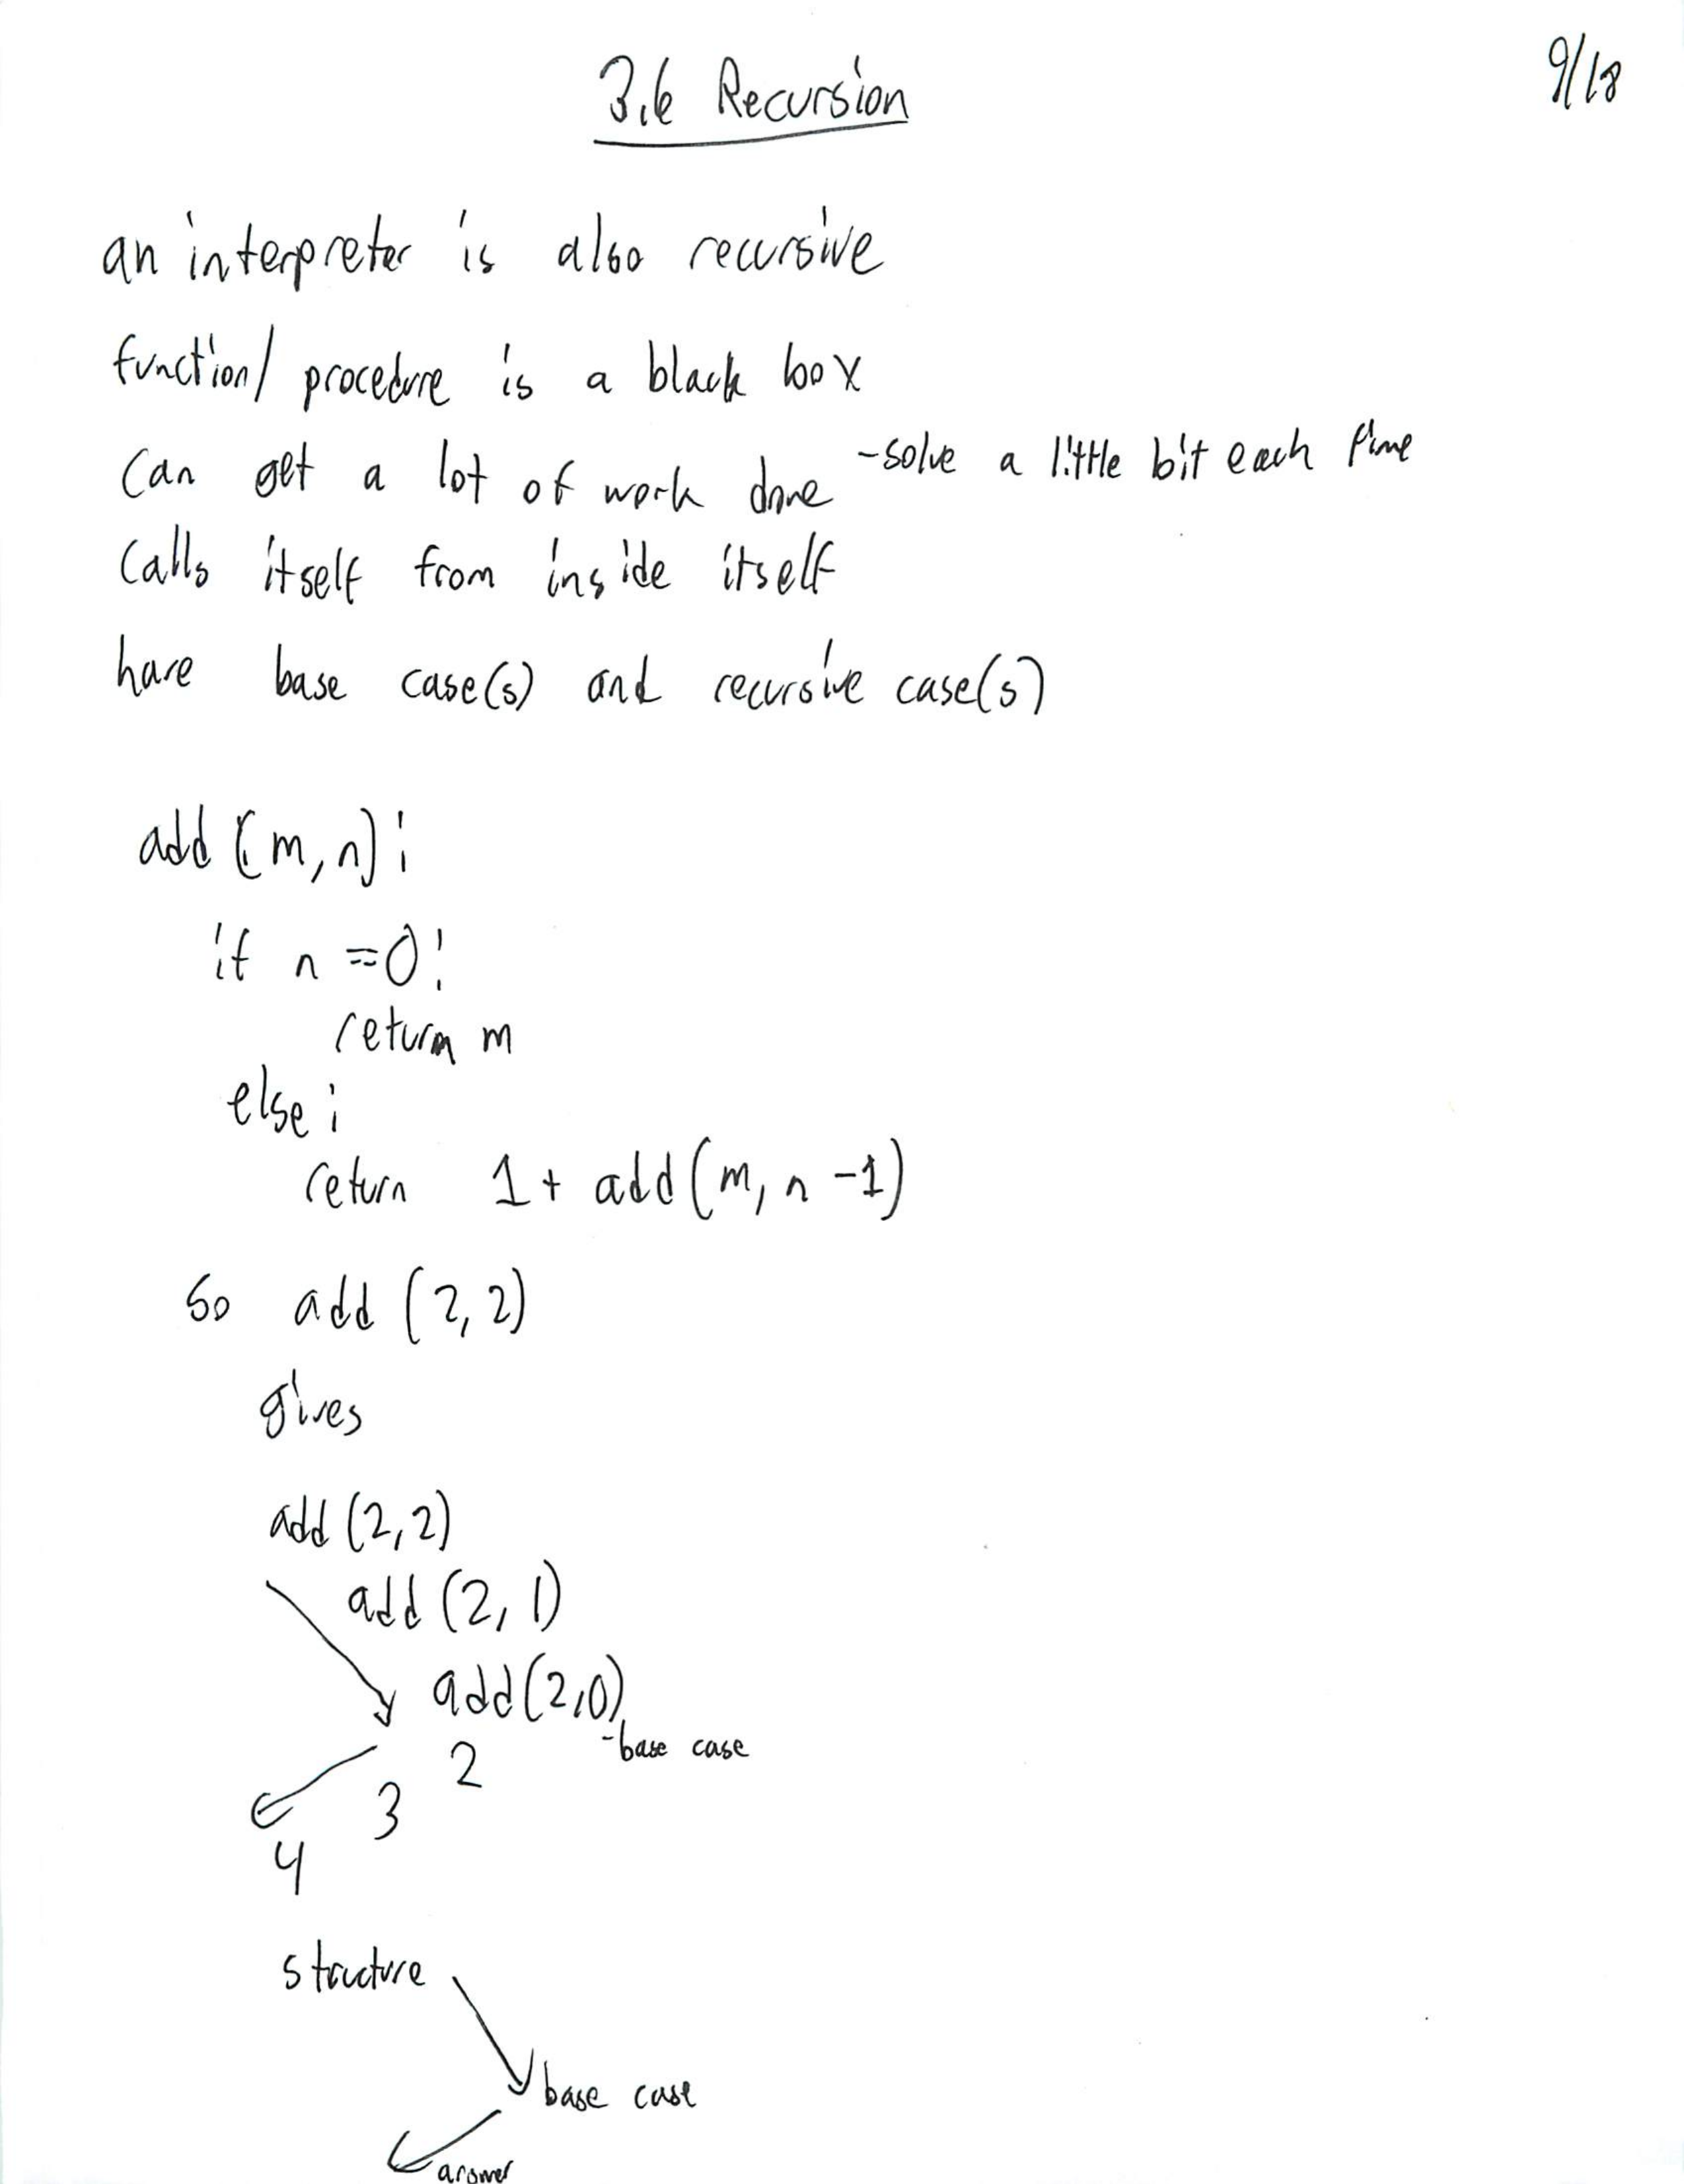 3.6 Recursion
9/18
an interpreter is also recursive
function/procedure is a black box
can get a lot of work done -solve a little bit each time
calls itself from inside itself
have base case(s) and recursive case(s)
add (m, n):
if n ==0:
return m
else:
return 1+ add(m, n -1)
So add (2, 2)
gives
add (2,2)
add (2, 1)
add(2,0)
-base case
2
3
4
structure
base case
answer